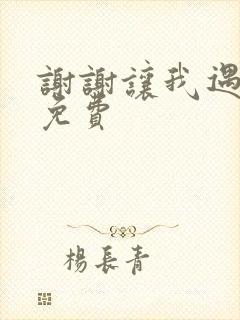 謝謝讓我遇
免費
楊長青